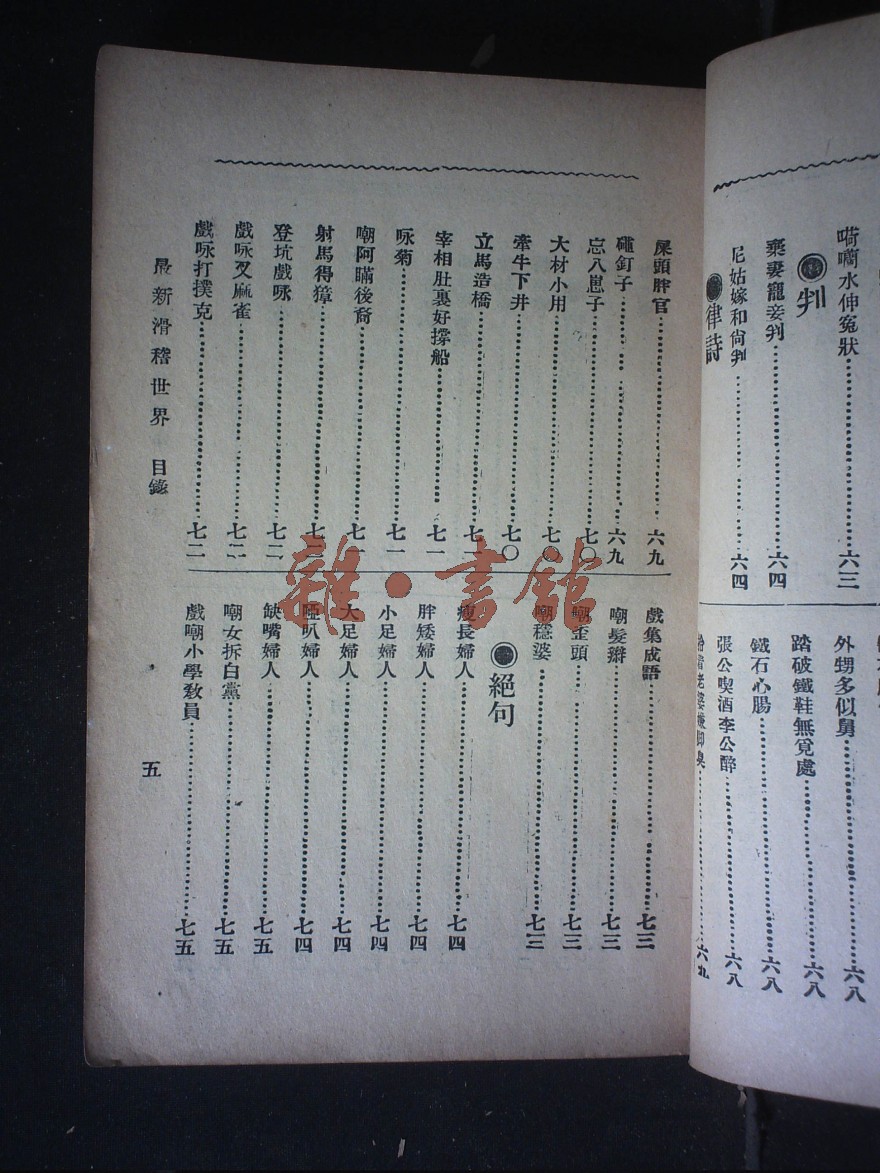 嗬嘴水伸冤狀……六三
判
棄妻寵妾判……六四
尼姑嫁和尙判……六四
律詩
外甥多似舅……六八
踏破鐵鞋無覓處……六八
鐵石心腸……六八
張公喫酒李公醉……六八
屎頭胖官……六九
碰釘子……六九
忘八崽子……七〇
大材小用……七〇
牽牛下井……七〇
立馬造橋……七一
宰相肚裏好撐船……七一
咏菊……七一
嘲阿瞞後裔……七一
射馬得獐……七二
登坑戲咏……七二
戲咏叉麻雀……七二
戲咏打撲克……七二
戲集成語……七三
嘲髮辮……七三
嘲歪頭……七三
嘲穩婆……七三
絕句
瘦長婦人……七四
胖矮婦人……七四
小足婦人……七四
大足婦人……七四
啞叭婦人……七四
缺嘴婦人……七五
嘲女拆白黨……七五
戲嘲小學敎員……七五
最新滑稽世界 目錄
五
雜·書館